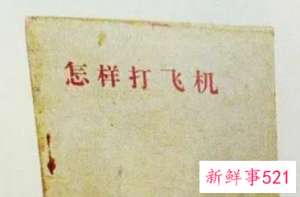 怎样打飞机
新鲜事521